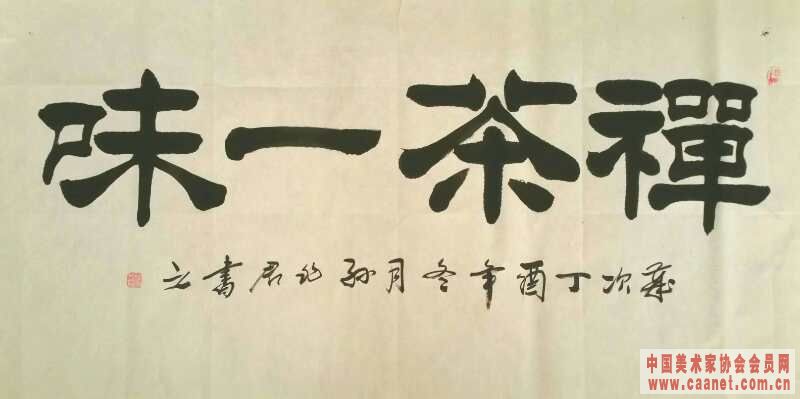 禪茶一味
歲次丁酉年冬月孫鈞君書之
中国美术家协会会员网
www.caanet.com.cn